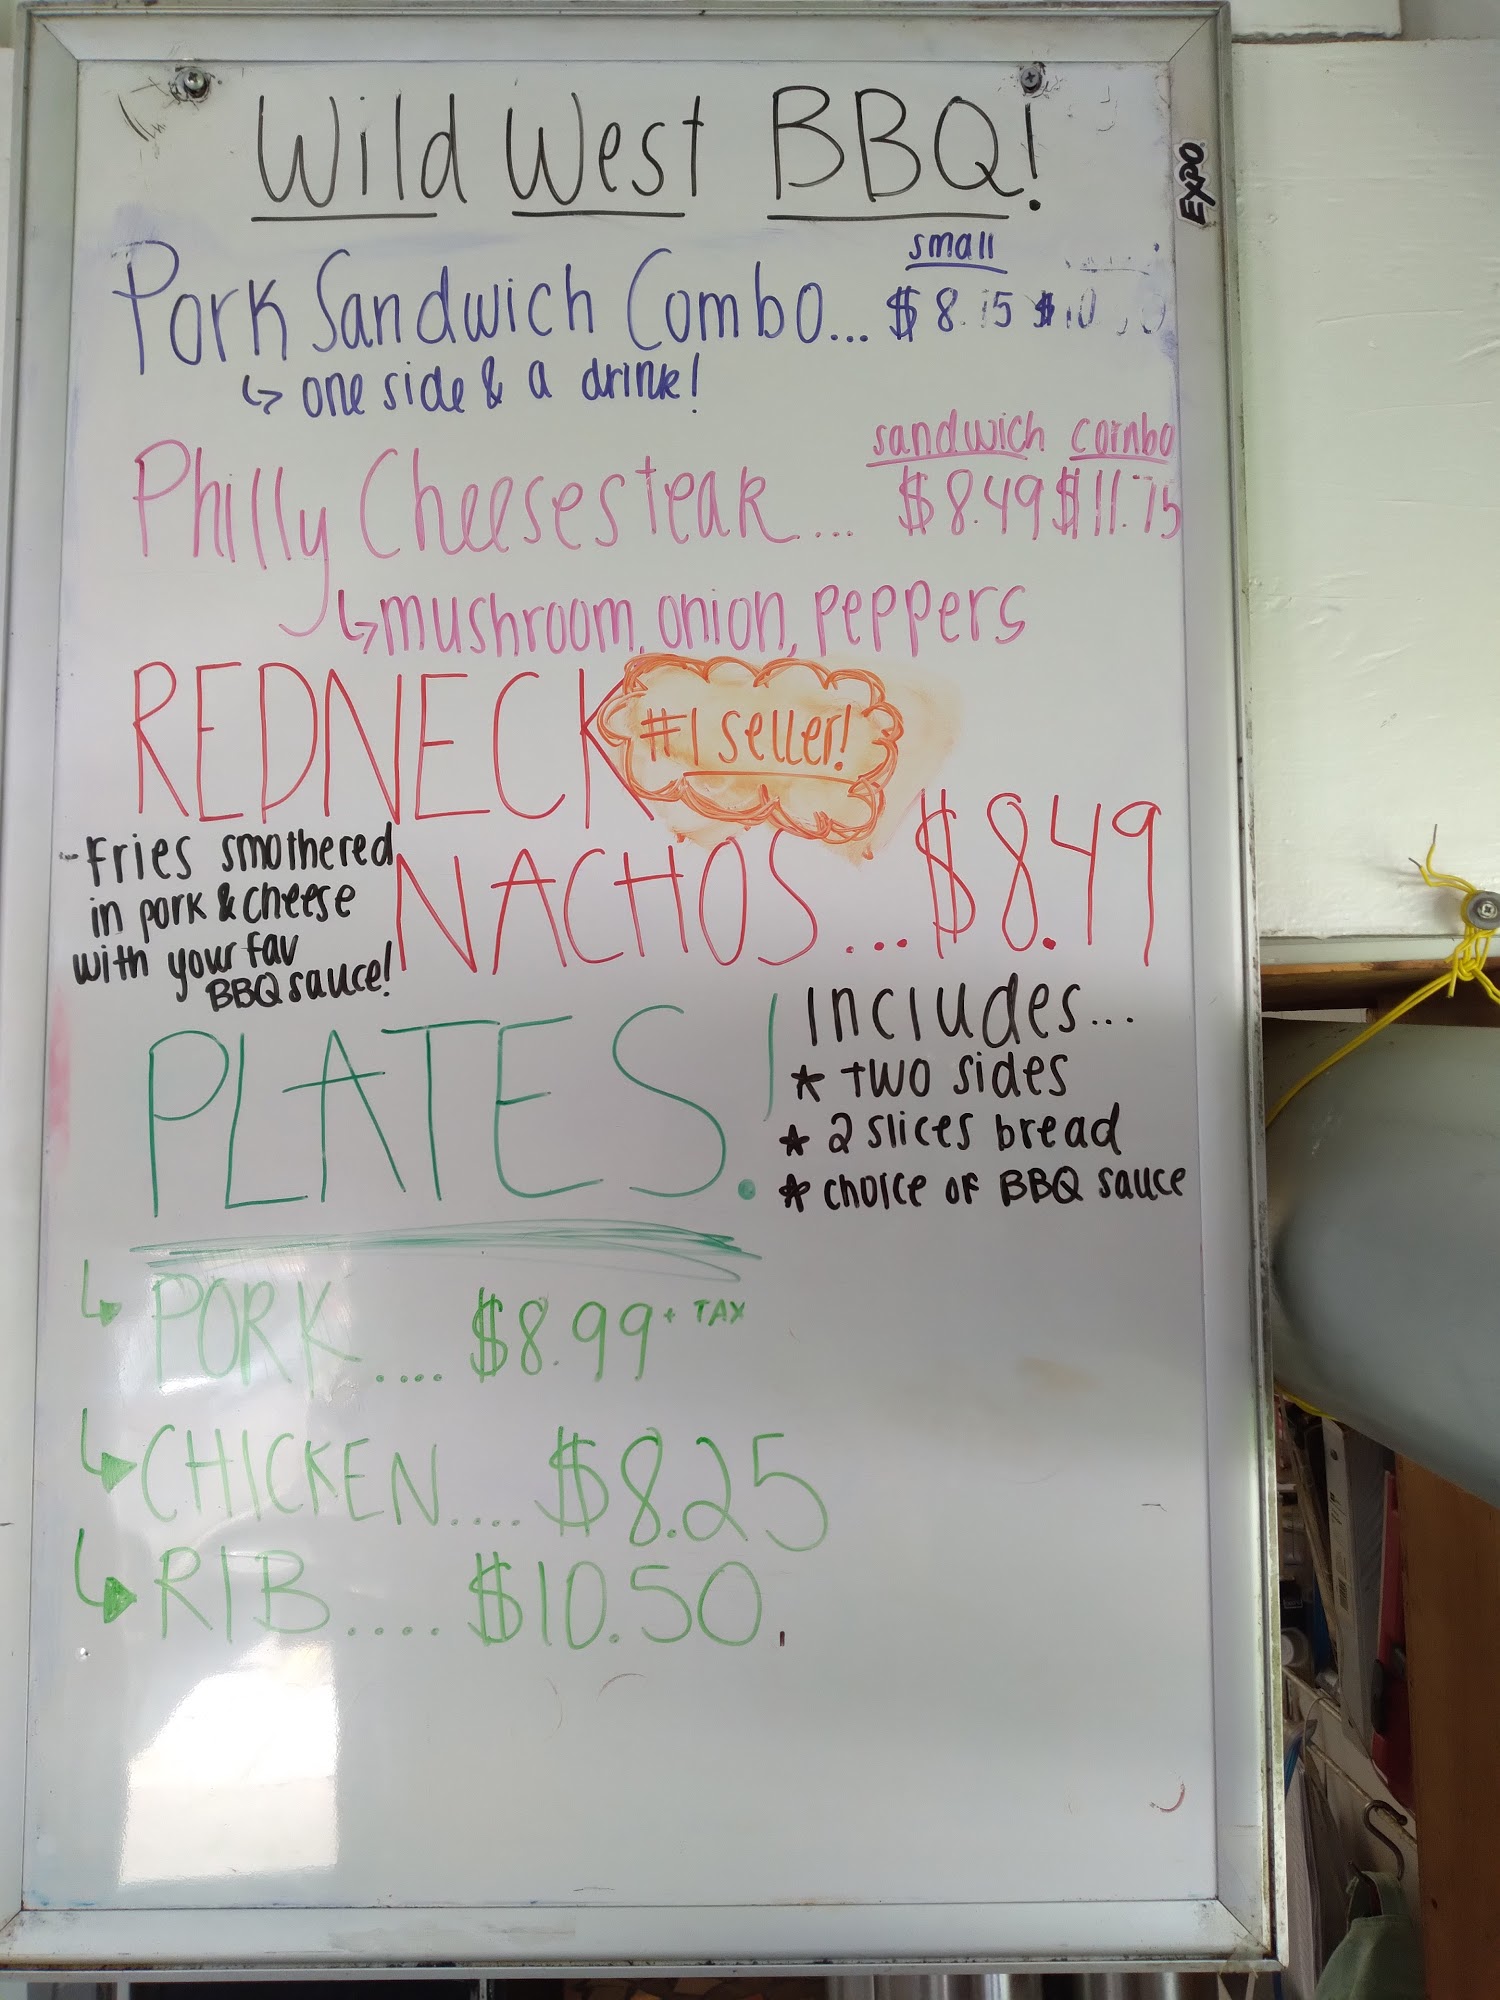 Wild West BBQ!
EXPO
small
Pork Sandwich Combo... $8.75 $10
↳ one side & a drink!
sandwich combo
Philly Cheesesteak.... $8.49 $11.75
↳ mushroom, onion, peppers
REDNECK
#1 seller!
NACHOS... $8.49
-Fries smothered
in pork & cheese
with your fav
BBQ sauce!
PLATES!
Includes...
* two sides
* 2 slices bread
* choice of BBQ sauce
↳ PORK.... $8.99 + TAX
↳ CHICKEN.... $8.25
↳ RIB.... $10.50